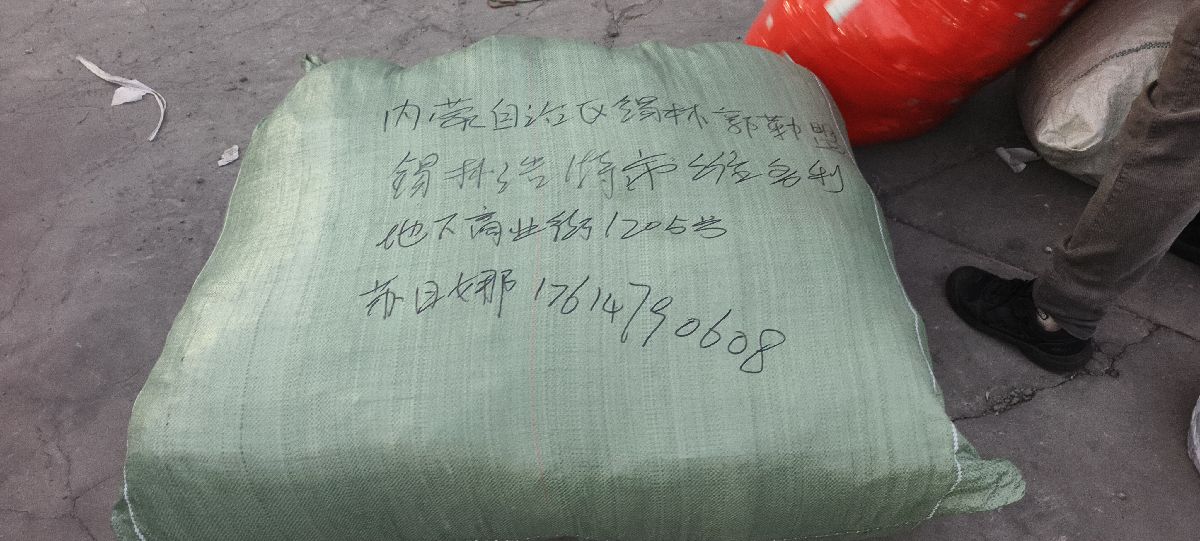 内蒙自治区锡林郭勒盟
锡林浩特市维多利
地下商业街1205号
苏日娜 17614790608